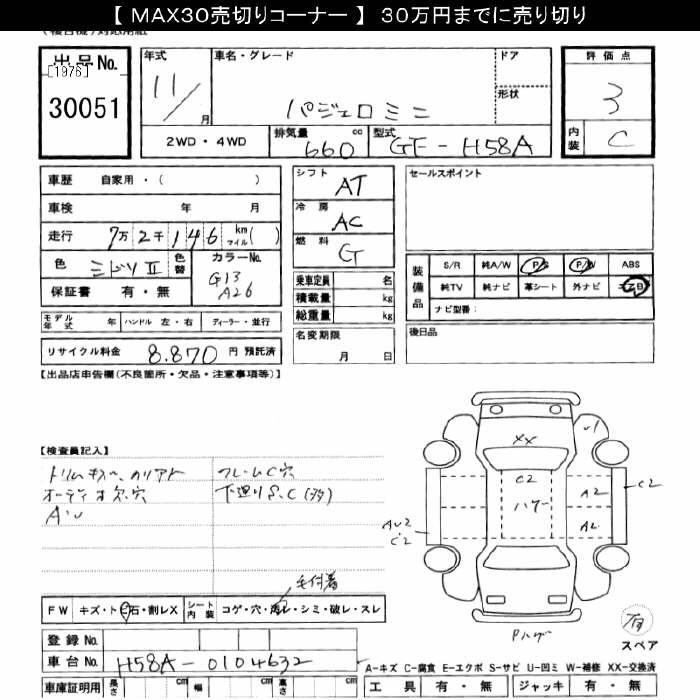 【 MAX30売切りコーナー 】 30万円までに売り切り
出品No.
[1976]
30051
年式 11/ 月
車名・グレード パジェロミニ
ドア
形状
評価点 3
内装 C
2WD・4WD 排気量 660 cc 型式 GF-H58A
車歴 自家用・( )
車検 年 月
走行 7万2千146 km マイル( )
色 ミドリII 色替 カラーNo. G13 A26
保証書 有・無
シフト AT
冷房 AC
燃料 G
乗車定員 名
積載量 kg
総重量 kg
セールスポイント
装備品 S/R 純A/W P/S P/W ABS
純TV 純ナビ 革シート 外ナビ エアB
ナビ型番:
モデル年式 年 ハンドル 左・右 ディーラー・並行
名変期限 月 日
後日品
リサイクル料金 8.870 円 預託済
【出品店申告欄(不良箇所・欠品・注意事項等)】
【検査員記入】
フレームC穴
下廻りS、C(多)
XX
C2
ハゲー
U1
A2
C2
AU2
C2
毛付着
FW キズ・ト石・割レX シート内装 コゲ・穴・汚レ・シミ・破レ・スレ
Pハゲ
有
スペア
登録No.
車台No. H58A-0104632
A-キズ C-腐食 E-エクボ S-サビ U-凹ミ W-補修 XX-交換済
車庫証明用 長さ cm 幅 cm 高さ cm
工具 有・無 ジャッキ 有・無